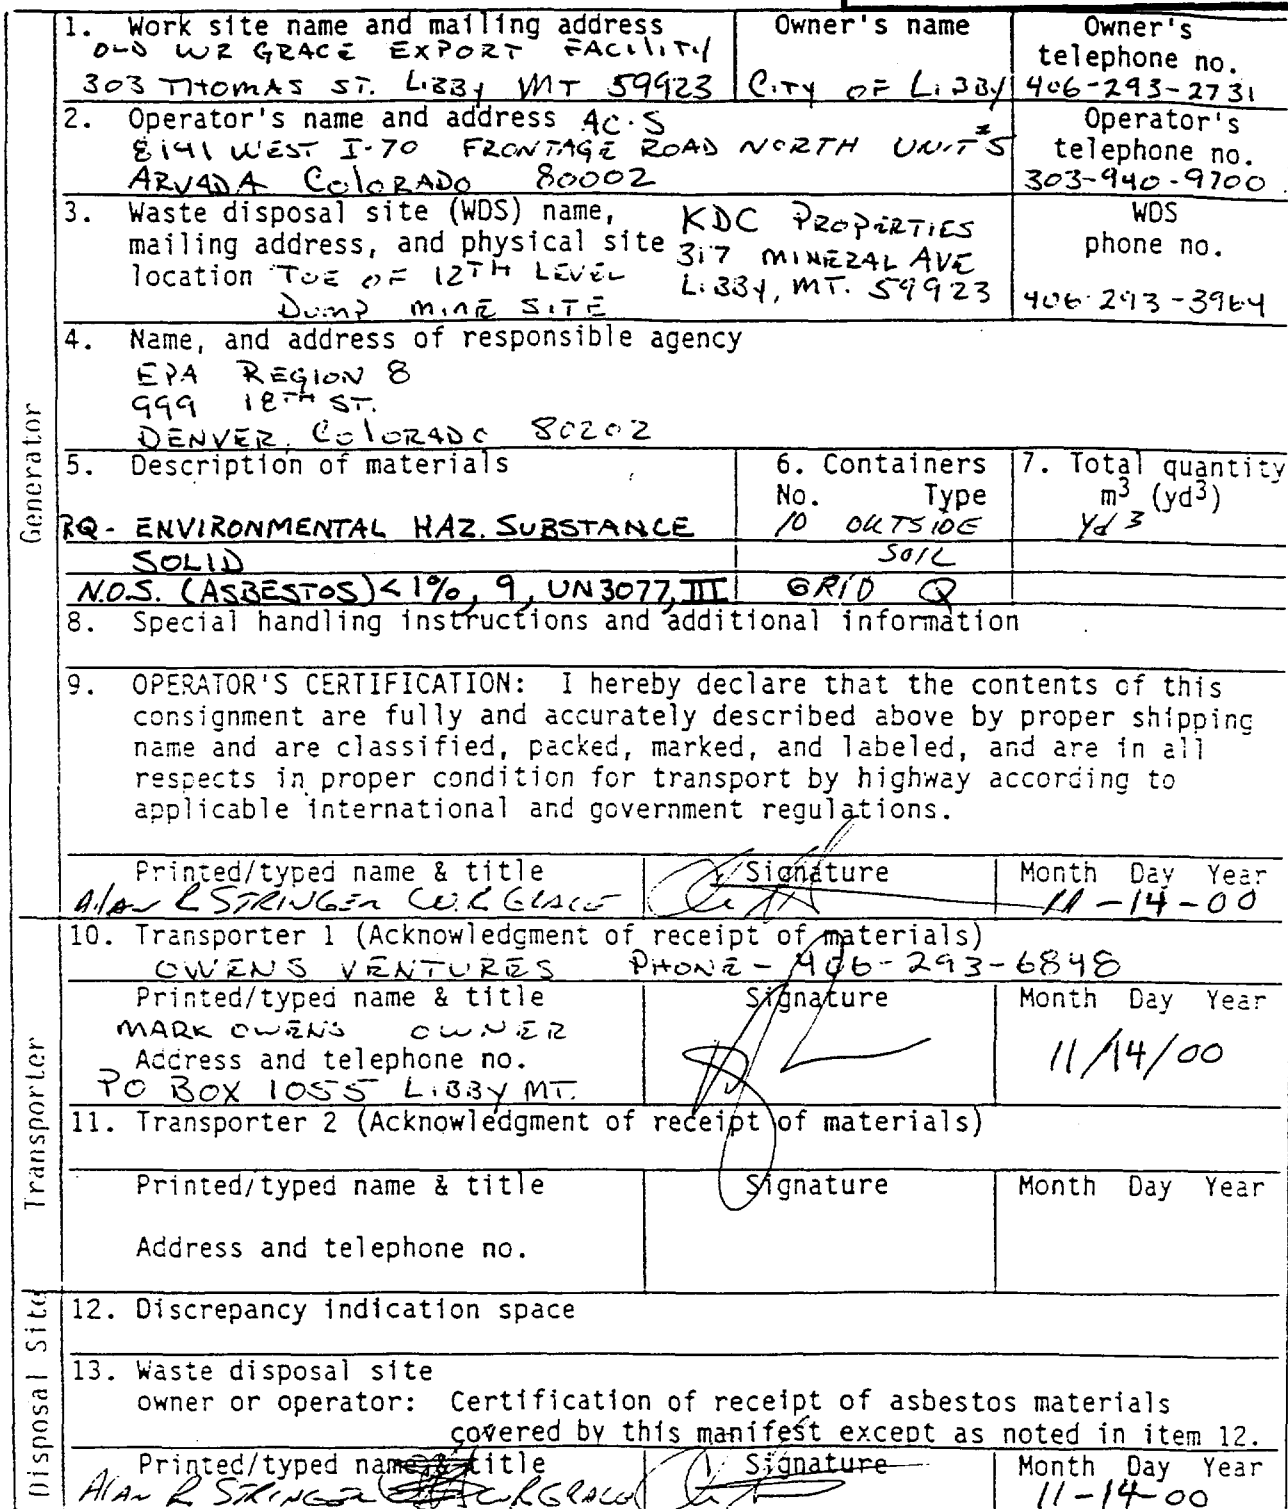 1. Work site name and mailing address
OLD WR GRACE EXPORT FACILITY
303 THOMAS ST. LIBBY MT 59923
Owner's name
CITY OF LIBBY
Owner's
telephone no.
406-293-2731
2. Operator's name and address AC.S
8141 WEST I-70 FRONTAGE ROAD NORTH UNIT #5
ARVADA COLORADO 80002
Operator's
telephone no.
303-940-9700
3. Waste disposal site (WDS) name,
mailing address, and physical site
location TOE OF 12TH LEVEL
DUMP MINE SITE
KDC PROPERTIES
317 MINERAL AVE
LIBBY, MT. 59923
WDS
phone no.
406-293-3964
Generator
4. Name, and address of responsible agency
EPA REGION 8
999 18TH ST.
DENVER, COLORADO 80202
5. Description of materials
6. Containers
No. Type
7. Total quantity
m3 (yd3)
RQ - ENVIRONMENTAL HAZ. SUBSTANCE
10 OUTSIDE
Yd3
SOLID
SOIL
N.O.S. (ASBESTOS) < 1%, 9, UN3077, III
GRID Q
8. Special handling instructions and additional information
9. OPERATOR'S CERTIFICATION: I hereby declare that the contents of this
consignment are fully and accurately described above by proper shipping
name and are classified, packed, marked, and labeled, and are in all
respects in proper condition for transport by highway according to
applicable international and government regulations.
Printed/typed name & title
Alan R STRINGER W.R GRACE
Signature
Month Day Year
11-14-00
Transporter
10. Transporter 1 (Acknowledgment of receipt of materials)
OWENS VENTURES PHONE - 406-293-6848
Printed/typed name & title
MARK OWENS OWNER
Address and telephone no.
PO BOX 1055 LIBBY MT.
Signature
Month Day Year
11/14/00
11. Transporter 2 (Acknowledgment of receipt of materials)
Printed/typed name & title
Signature
Month Day Year
Address and telephone no.
Disposal Site
12. Discrepancy indication space
13. Waste disposal site
owner or operator: Certification of receipt of asbestos materials
covered by this manifest except as noted in item 12.
Printed/typed name & title
Alan R STRINGER W R GRACE
Signature
Month Day Year
11-14-00